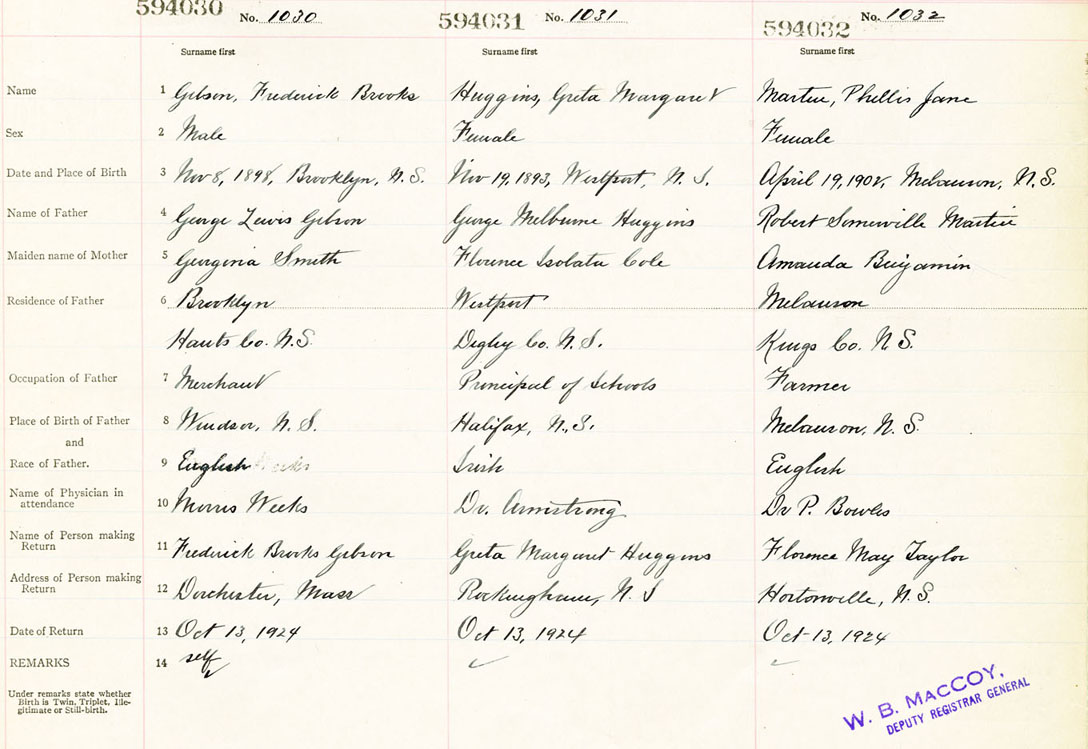 594030 No. 1030 594031 No. 1031 594032 No. 1032
Surname first Surname first Surname first
Name 1 Gibson, Frederick Brooks Huggins, Greta Margaret Martin, Phellis Jane
Sex 2 Male Female Female
Date and Place of Birth 3 Nov 8, 1898, Brooklyn, N.S. Nov 19, 1893, Westport, N.S. April 19, 1902, Melanson, N.S.
Name of Father 4 George Lewis Gibson George Melburne Huggins Robert Somerville Martin
Maiden name of Mother 5 Georgina Smith Florence Isolata Cole Amanda Benjamin
Residence of Father 6 Brooklyn Westport Melanson
Hants Co. N.S. Digby Co. N.S. Kings Co. N.S.
Occupation of Father 7 Merchant Principal of Schools Farmer
Place of Birth of Father 8 Windsor, N.S. Halifax, N.S. Melanson, N.S.
and
Race of Father. 9 English Irish English
Name of Physician in attendance 10 Morris Weeks Dr. Armstrong Dr P. Bowles
Name of Person making Return 11 Frederick Brooks Gibson Greta Margaret Huggins Florence May Taylor
Address of Person making Return 12 Dorchester, Mass Rockingham, N.S Hortonville, N.S.
Date of Return 13 Oct 13, 1924 Oct 13, 1924 Oct 13, 1924
REMARKS 14 self
Under remarks state whether
Birth is Twin, Triplet, Ille-
gitimate or Still-birth.
W. B. MACCOY,
DEPUTY REGISTRAR GENERAL